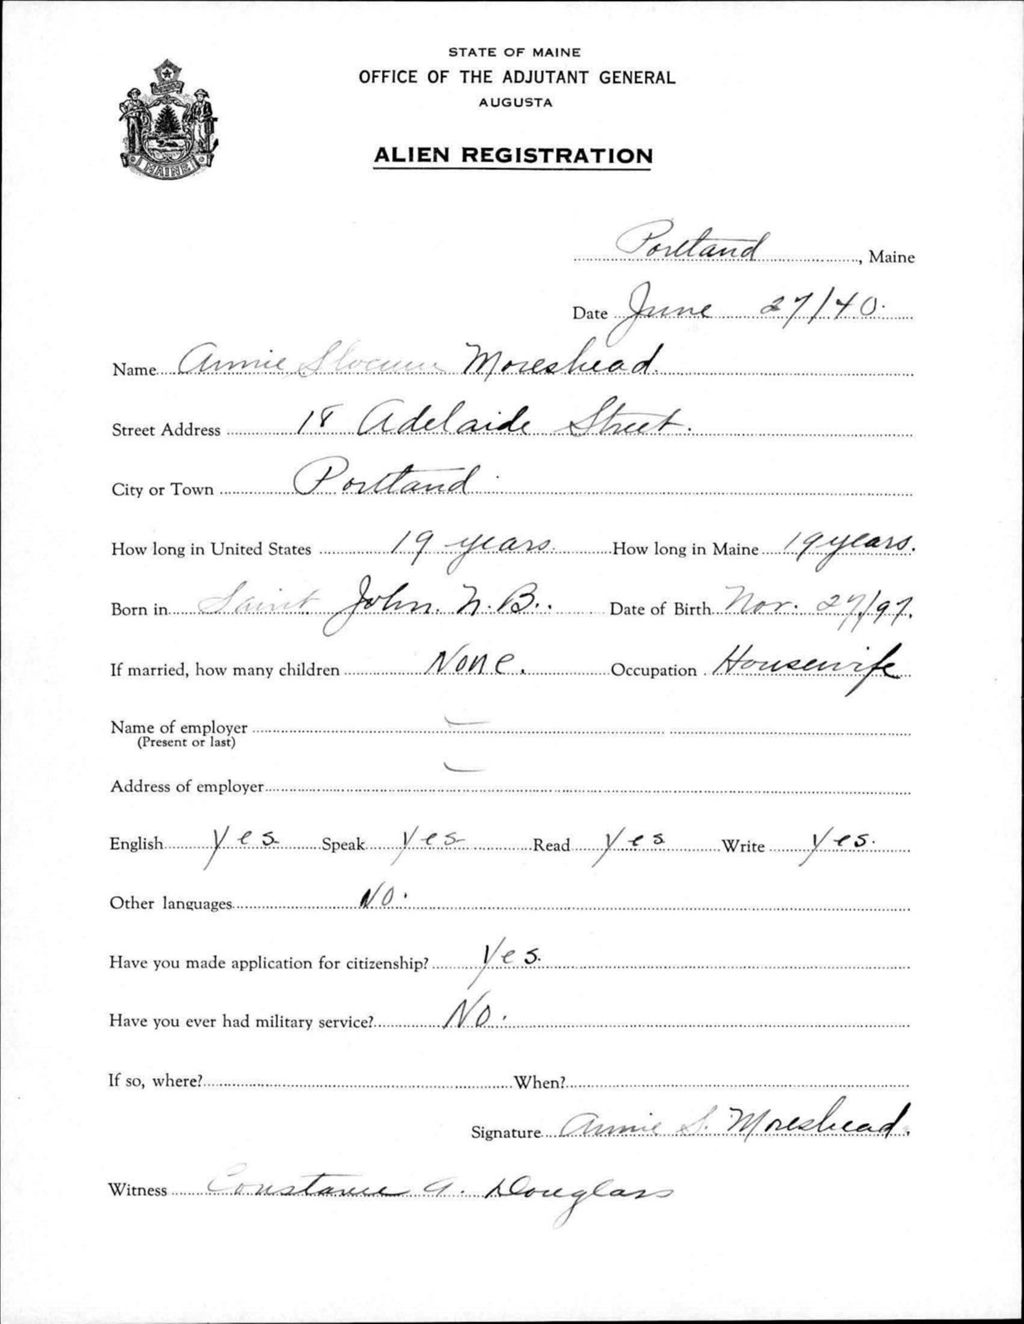 STATE OF MAINE
OFFICE OF THE ADJUTANT GENERAL
AUGUSTA
ALIEN REGISTRATION
MAINE
Portland, Maine
Date June 27/40.
Name Annie Slocum Moreshead.
Street Address 18 Adelaide Street.
City or Town Portland.
How long in United States 19 years. How long in Maine 19 years.
Born in Saint John. N.B.. Date of Birth Nov. 27/97.
If married, how many children None. Occupation Housewife
Name of employer —
(Present or last)
Address of employer —
English Yes. Speak Yes. Read Yes Write Yes.
Other languages No.
Have you made application for citizenship? Yes.
Have you ever had military service? No.
If so, where? When?
Signature Annie S. Moreshead.
Witness Constance A. Douglass